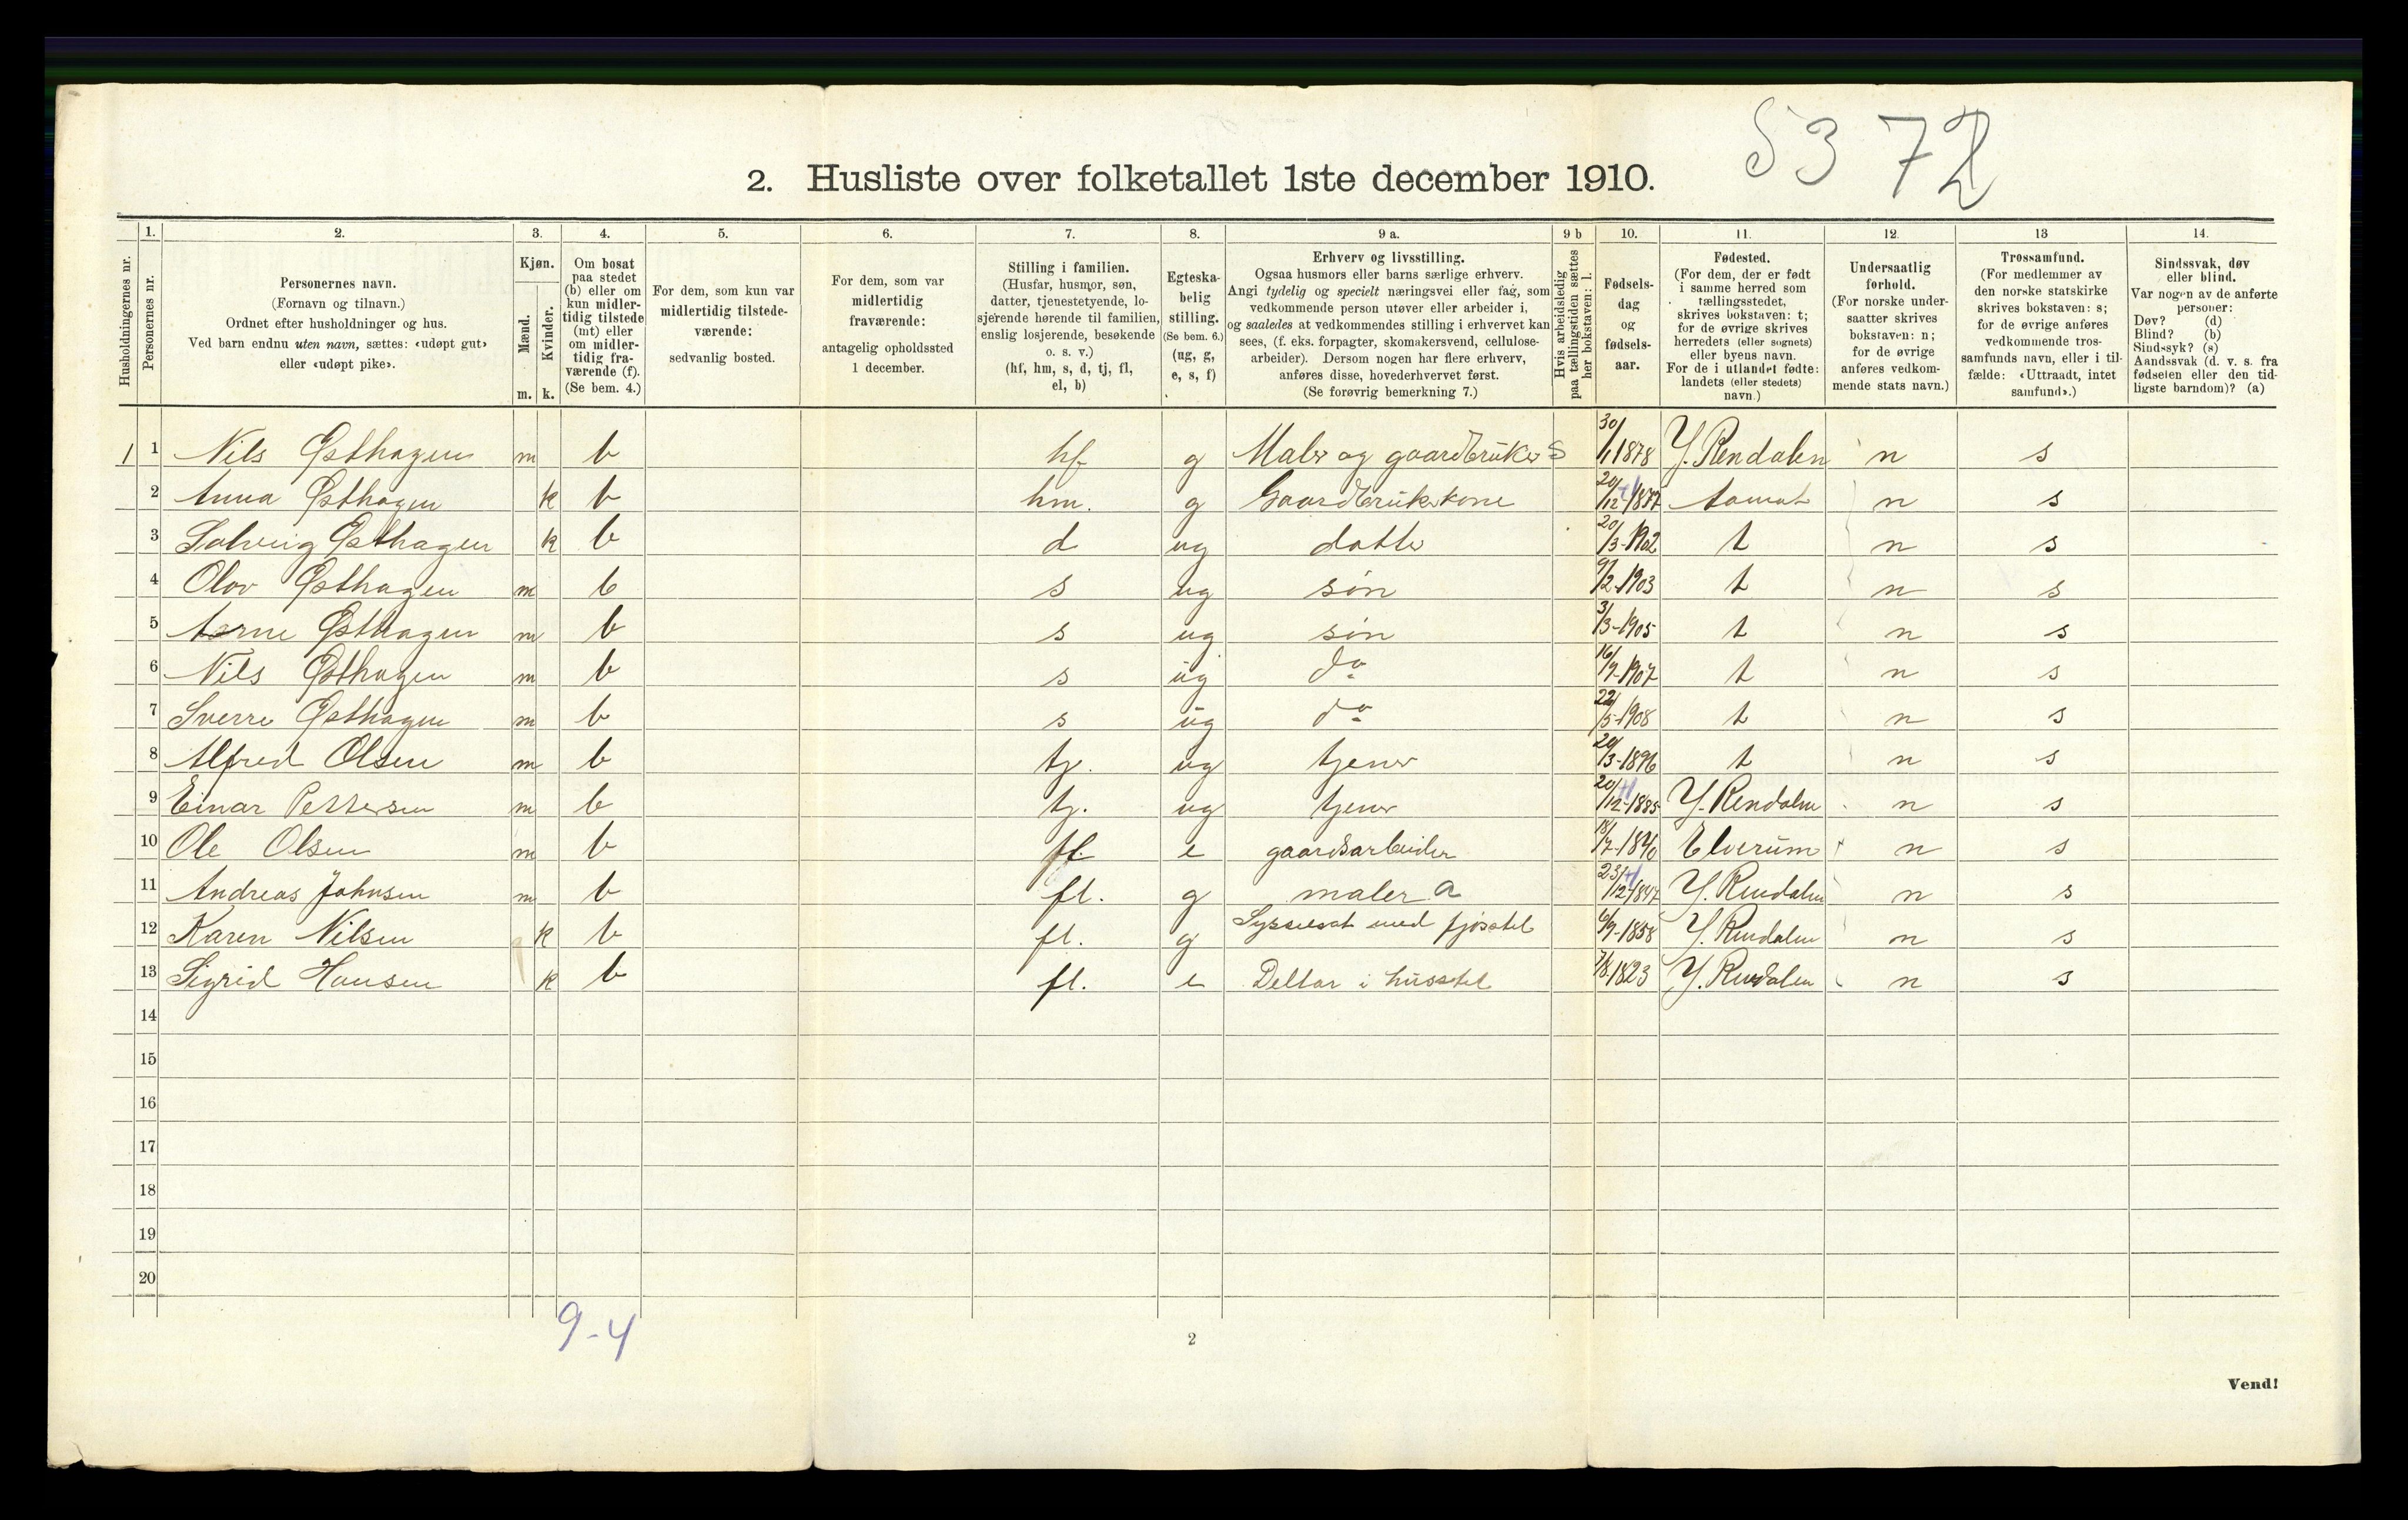 5372
2. Husliste over folketallet 1ste december 1910.
Husholdningernes nr.
1.
Personernes nr.
2.
Personernes navn.
(Fornavn og tilnavn.)
Ordnet efter husholdninger og hus.
Ved barn endnu uten navn, sættes: «udøpt gut»
eller «udøpt pike».
3.
Kjøn.
Mænd.
Kvinder.
m. k.
4.
Om bosat
paa stedet
(b) eller om
kun midler-
tidig tilstede
(mt) eller
om midler-
tidig fra-
værende (f).
(Se bem. 4.)
5.
For dem, som kun var
midlertidig tilstede-
værende:
sedvanlig bosted.
6.
For dem, som var
midlertidig
fraværende:
antagelig opholdssted
1 december.
7.
Stilling i familien.
(Husfar, husmor, søn,
datter, tjenestetyende, lo-
sjerende hørende til familien,
enslig losjerende, besøkende
o. s. v.)
(hf, hm, s, d, tj, fl,
el, b)
8.
Egteska-
belig
stilling.
(Se bem. 6.)
(ug, g,
e, s, f)
9 a.
Erhverv og livsstilling.
Ogsaa husmors eller barns særlige erhverv.
Angi tydelig og specielt næringsvei eller fag, som
vedkommende person utøver eller arbeider i,
og saaledes at vedkommendes stilling i erhvervet kan
sees, (f. eks. forpagter, skomakersvend, cellulose-
arbeider). Dersom nogen har flere erhverv,
anføres disse, hovederhvervet først.
(Se forøvrig bemerkning 7.)
9 b
Hvis arbeidsledig
paa tællingstiden sættes
her bokstaven: l.
10.
Fødsels-
dag
og
fødsels-
aar.
11.
Fødested.
(For dem, der er født
i samme herred som
tællingsstedet,
skrives bokstaven: t;
for de øvrige skrives
herredets (eller sognets)
eller byens navn.
For de i utlandet fødte:
landets (eller stedets)
navn.)
12.
Undersaatlig
forhold.
(For norske under-
saatter skrives
bokstaven: n;
for de øvrige
anføres vedkom-
mende stats navn.)
13
Trossamfund.
(For medlemmer av
den norske statskirke
skrives bokstaven: s;
for de øvrige anføres
vedkommende tros-
samfunds navn, eller i til-
fælde: «Uttraadt, intet
samfund».)
14.
Sindssvak, døv
eller blind.
Var nogen av de anførte
personer:
Døv? (d)
Blind? (b)
Sindssyk? (s)
Aandssvak (d. v. s. fra
fødselen eller den tid-
ligste barndom)? (a)
1 1 Nils Østhagen m b hf g Maler og gaardbruker S 30/1 1878 Y. Rendalen n s
2 Anna Østhagen k b hm. g Gaardbrukerkone 20/12-1877 Aamot n s
3 Solveig Østhagen k b d ug datter 20/3-1902 t n s
4 Olov Østhagen m b s ug søn 9/2-1903 t n s
5 Aarne Østhagen m b s ug søn 3/3-1905 t n s
6 Nils Østhagen m b s ug do 16/7-1907 t n s
7 Sverre Østhagen m b s ug do 22/5-1908 t n s
8 Alfred Olsen m b tj. ug tjener 20/3-1896 t n s
9 Einar Pettersen m b tj. ug tjener 20/12-1885 Y. Rendalen n s
10 Ole Olsen m b fl. e gaardsarbeider 18/7-1840 Elverum n s
11 Andreas Johnsen m b fl. g maler a 23/12-1847 Y. Rendalen n s
12 Karen Nilsen k b fl. g Sysselsat med fjøsstel 6/9-1858 Y. Rendalen n s
13 Sigrid Hansen k b fl. e Deltar i husstel 7/8-1823 Y. Rendalen n s
14
15
16
17
18
19
20
9-4
2
Vend!